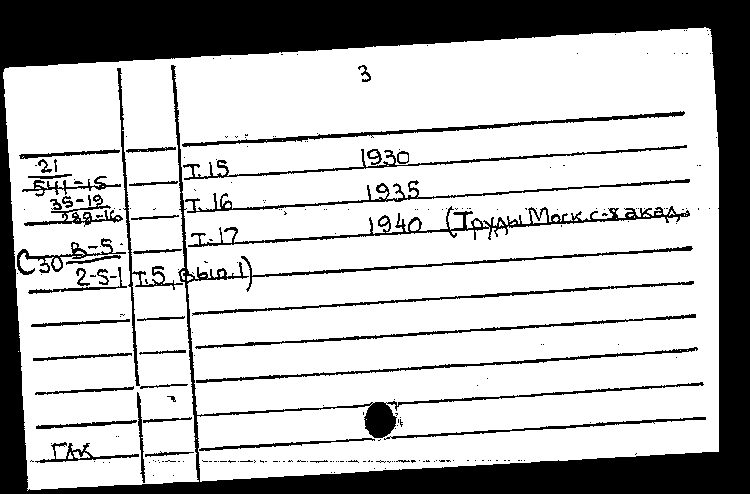 3
21 Т.15 1930
541-15
35-19 Т.16 1935
289-16
Т.17 1940 (Труды Моск. с-х акад.,
С30 В-5
2-5-1 Т.5, вып.1)
ГАК